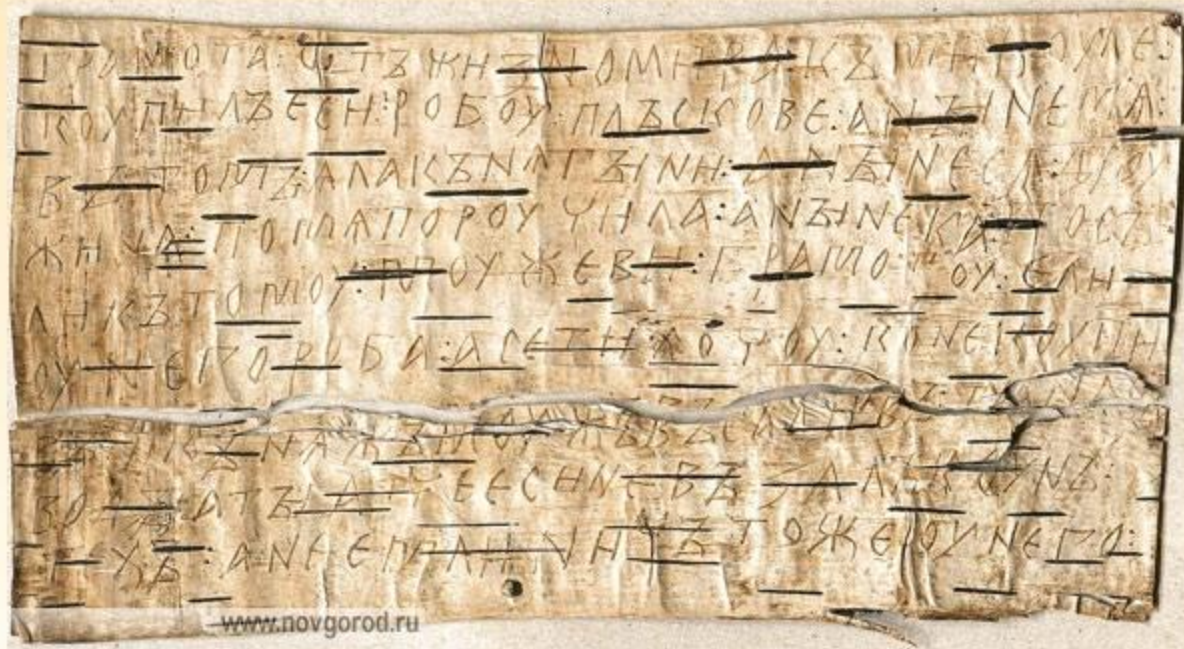 грамота : ѡтъ жизномира : къ микоуле :
коупилъ еси : робоу : плъскове : а нъіне мѧ :
въ томъ : ѧла кънѧгъіни : а нъіне сѧ дроу
жина : по мѧ пороучила : а нъіне ка : посъ
ли къ томоу : моужеви : грамотоу : е ли
оу него роба : а се ти хочоу : коне коупи
въ : и кънѧжъ моужъ въсадивъ : та на съ
водъі : а тъі атче еси не възалъ коунъ :
техъ : а не емли : ничъто же оу него :
www.novgorod.ru